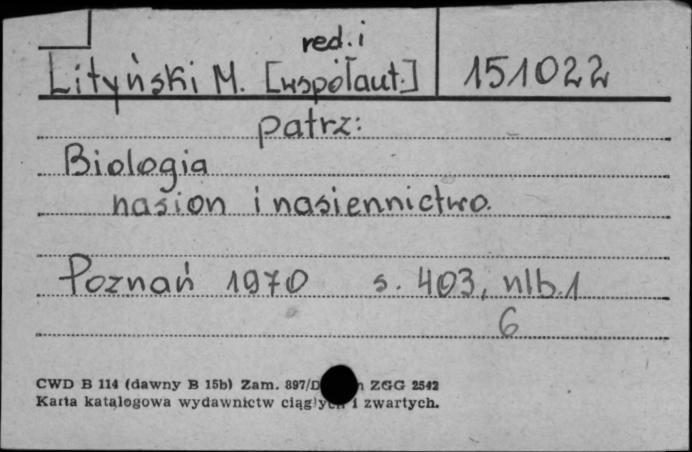 red. i
Lityński M. [współaut.] 151022
patrz:
Biologia
nasion i nasiennictwo.
Poznań 1970 s. 403, nlb. 1
6
CWD B 114 (dawny B 15b) Zam. 897/D ZGG 2542
Karta katalogowa wydawnictw ciągłych i zwartych.